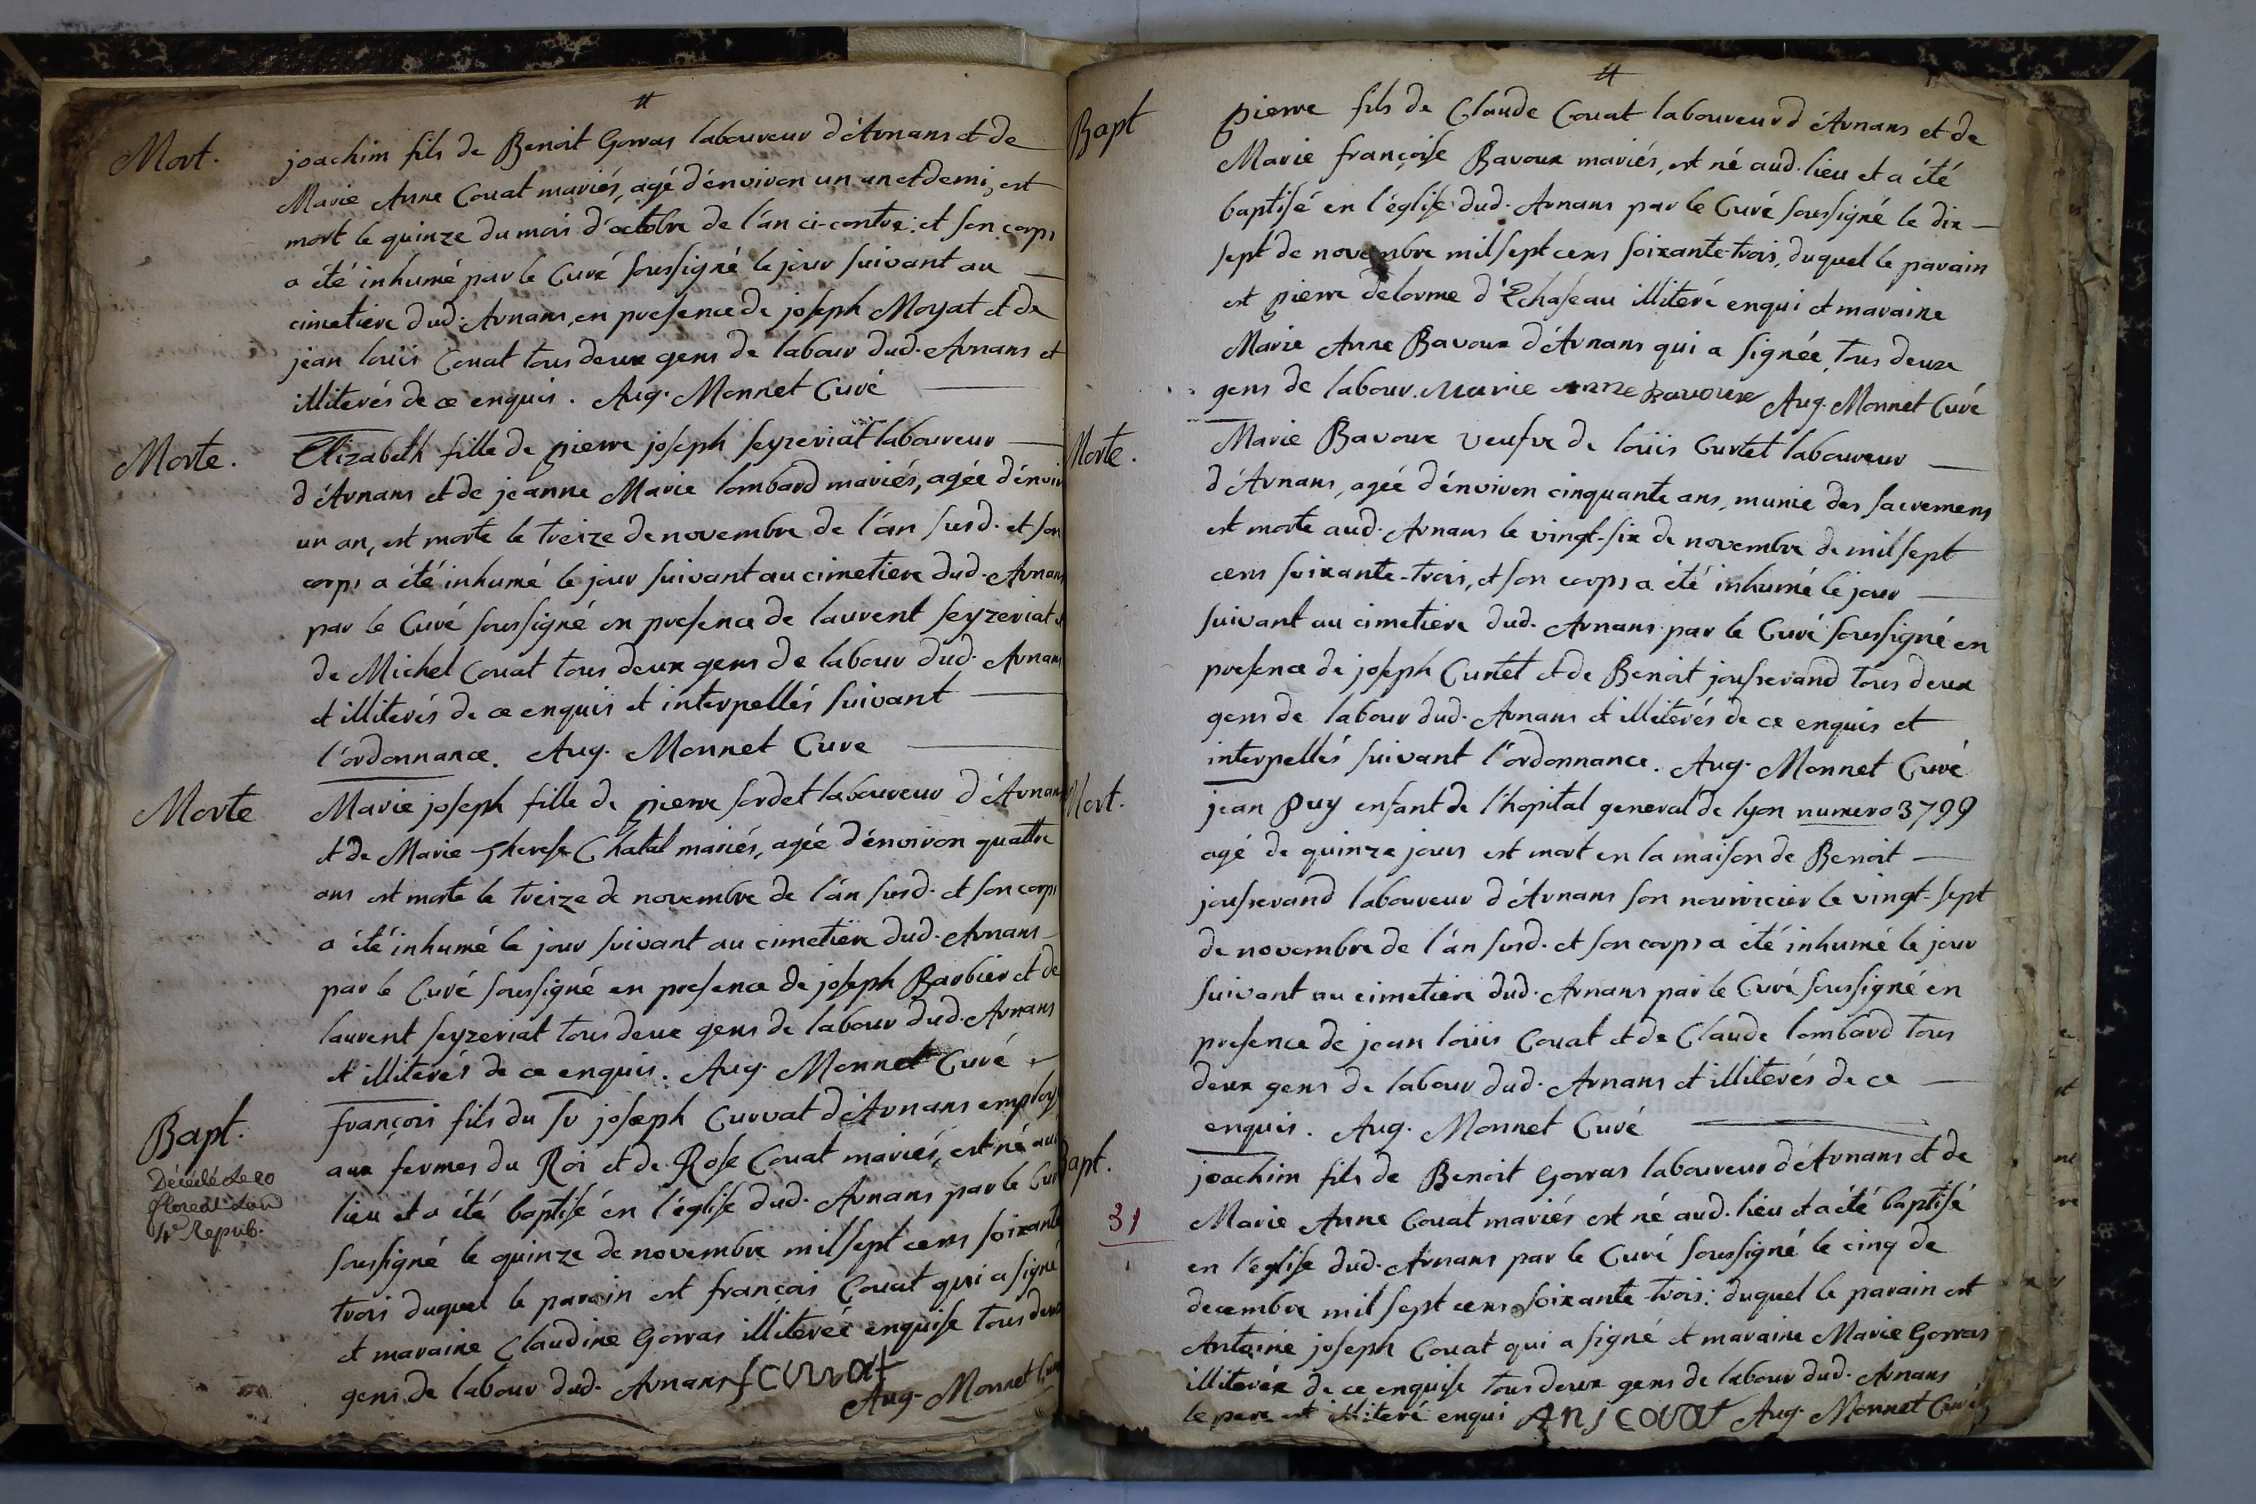 Mort.
joachim fils de Benoit Gorras laboureur d'Arnans et de
Marie Anne Couat mariés, agé d'environ un an et demi, est
mort le quinze du mois d'octobre de l'an ci-contre: et son corps
a été inhumé par le Curé soussigné le jour suivant au
cimetiere dud. Arnans, en presence de joseph Moyat et de
jean loüis Couat tous deux gens de labour dud. Arnans et
illiterés de ce enquis. Aug. Monnet Curé
Morte.
Elizabeth fille de pierre joseph seyzeriat laboureur
d'Arnans et de jeanne Marie lombard mariés, agée d'envir
un an, est morte le treize de novembre de l'an susd. et son
corps a été inhumé le jour suivant au cimetiere dud. Arnans
par le Curé soussigné en presence de laurent seyzeriat et
de Michel Couat tous deux gens de labour dud. Arnans
et illiterés de ce enquis et interpellés suivant
l'ordonnance. Aug. Monnet Cure
Morte
Marie joseph fille de pierre sordet laboureur d'Arnans
et de Marie Therese Chatel mariés, agée d'environ quattre
ans est morte le treize de novembre de l'an susd. et son corps
a été inhumé le jour suivant au cimetiere dud. Arnans
par le Curé soussigné en presence de joseph Barbier et de
laurent seyzeriat tous deux gens de labour dud. Arnans
et illiterés de ce enquis. Aug. Monnet Curé
Bapt.
Décédé le 20
floreal l'an
4e Repub.
françois fils du Sr joseph Curvat d'Arnans employ
aux fermes du Roi et de Rose Couat mariés, est né aud
lieu et a été baptisé en l'église dud. Arnans par le Cur
soussigné le quinze de novembre mil sept cens soixante
trois duquel le parain est francois Couat qui a signé
et maraine Claudine Gorras illiterée enquise tous deux
gens de labour dud. Arnans f couat
Aug. Monnet Curé
Bapt
pierre fils de Claude Couat laboureur d'Arnans et de
Marie françoise Bavoux mariés, est né aud. lieu et a été
baptisé en l'église dud. Arnans par le Curé soussigné le dix
sept de novembre mil sept cens soixante-trois, duquel le parain
est pierre delorme d'Echaseau illiteré enqui et maraine
Marie Anne Bavoux d'Arnans qui a signée, tous deux
gens de labour. Marie anne bavoux Aug. Monnet Curé
Morte.
Marie Bavoux veufve de loüis Curtet laboureur
d'Arnans, agée d'environ cinquante ans, munie des sacremens
est morte aud. Arnans le vingt-six de novembre de mil sept
cens soixante-trois, et son corps a été inhumé le jour
suivant au cimetiere dud. Arnans par le Curé soussigné en
presence de joseph Curtet et de Benoit jousserand tous deux
gens de labour dud. Arnans et illiterés de ce enquis et
interpellés suivant l'ordonnance. Aug. Monnet Curé
Mort.
jean Puy enfant de l'hopital general de lyon numero 3799
agé de quinze jours est mort en la maison de Benoit
jousserand laboureur d'Arnans son nourricier le vingt-sept
de novembre de l'an susd. et son corps a été inhumé le jour
suivant au cimetiere dud. Arnans par le Curé soussigné en
presence de jean loüis Couat et de Claude lombard tous
deux gens de labour dud. Arnans et illiterés de ce
enquis. Aug. Monnet Curé
Bapt.
31
joachim fils de Benoit Gorras laboureur d'Arnans et de
Marie Anne Couat mariés est né aud. lieu et a été baptisé
en l'eglise dud. Arnans par le Curé soussigné le cinq de
decembre mil sept cens soixante-trois: duquel le parain est
Antoine joseph Couat qui a signé et maraine Marie Gorras
illiterée de ce enquise tous deux gens de labour dud. Arnans
le pere est illiteré enqui Anj couat Aug. Monnet Curé